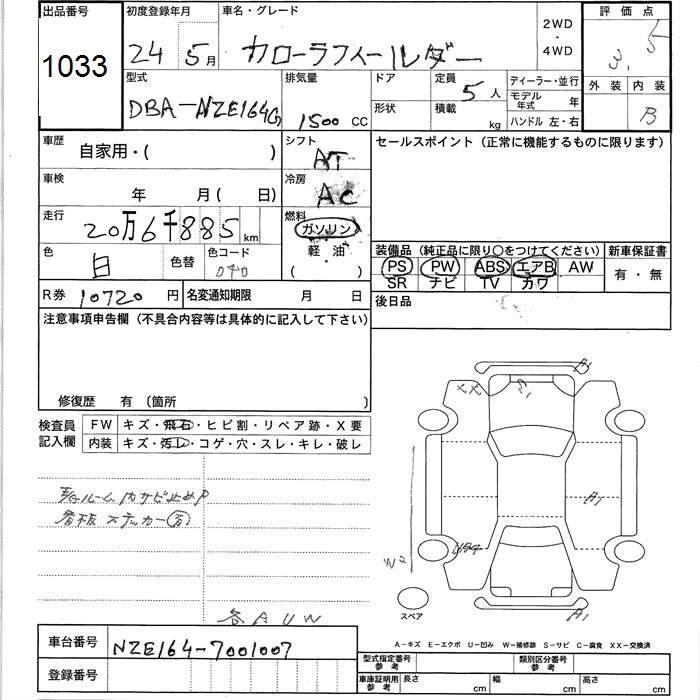 出品番号 初度登録年月 車名・グレード 2WD・4WD 評価点
1033 24 5月 カローラフィールダー 3.5
型式 排気量 ドア 定員 5人 ディーラー・並行 外装 内装
DBA-NZE164G 1500 CC 形状 積載 kg モデル年式 年 ハンドル 左・右 B
車歴 自家用・( ) シフト AT セールスポイント(正常に機能するものに限ります)
車検 年 月( 日) 冷房 AC
走行 20万6千885 km 燃料 ガソリン 軽・油 ( )
色 白 色替 色コード 040
装備品(純正品に限り○をつけてください) 新車保証書
PS PW ABS エアB AW 有・無
SR ナビ TV カワ
R券 10720円 名変通知期限 月 日 後日品
注意事項申告欄(不具合内容等は具体的に記入して下さい)
修復歴 有 (箇所 )
検査員記入欄 FW キズ・飛石・ヒビ割・リペア跡・X要
内装 キズ・汚レ・コゲ・穴・スレ・キレ・破レ
A1
A1
W2
A1
スペア
各AUW
A-キズ E-エクボ U-凹み W-補修跡 S-サビ C-腐食 XX-交換済
車台番号 NZE164-7001007
登録番号
型式指定番号 参考 類別区分番号 参考
車庫証明用 参考 長さ cm 幅 cm 高さ cm